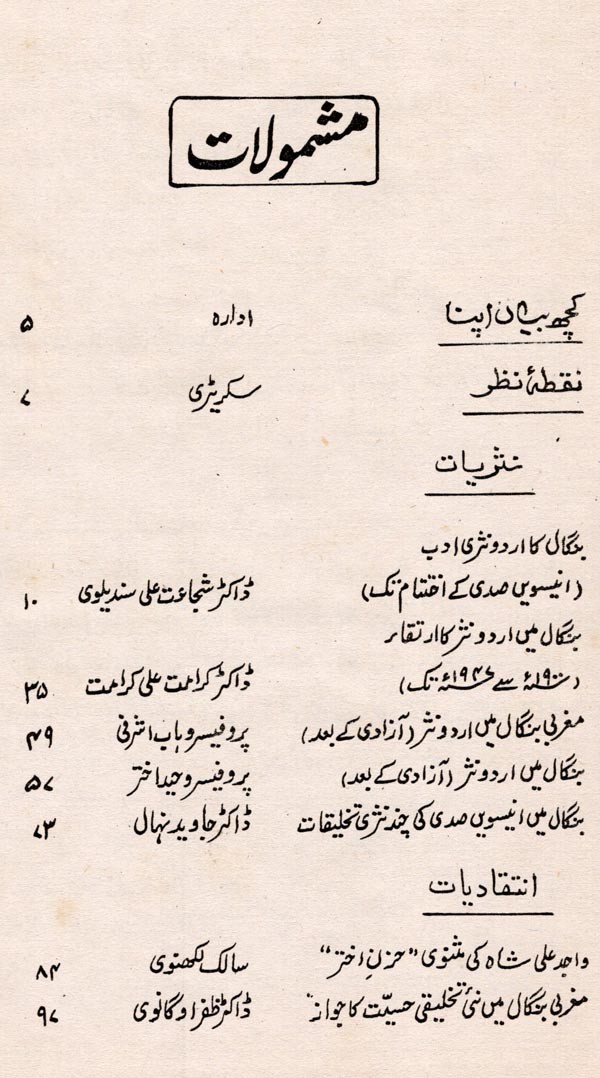 مشمولات
کچھ بیان اپنا ادارہ ۵
نقطۂ نظر سکریٹری ۷
نثریات
بنگال کا اردو نثری ادب
(انیسویں صدی کے اختتام تک) ڈاکٹر شجاعت علی سندیلوی ۱۰
بنگال میں اردو نثر کا ارتقاء
(۱۹۰۰ء سے ۱۹۴۷ء تک) ڈاکٹر کرامت علی کرامت ۳۵
مغربی بنگال میں اردو نثر (آزادی کے بعد) پروفیسر وہاب اشرفی ۴۹
بنگال میں اردو نثر (آزادی کے بعد) پروفیسر وحید اختر ۵۷
بنگال میں انیسویں صدی کی چند نثری تخلیقات ڈاکٹر جاوید نہال ۷۳
انتقادیات
واجد علی شاہ کی مثنوی "حزنِ اختر" سالک لکھنوی ۸۴
مغربی بنگال میں نئی تخلیقی حسیّت کا جواز ڈاکٹر ظفر اوگانوی ۹۷